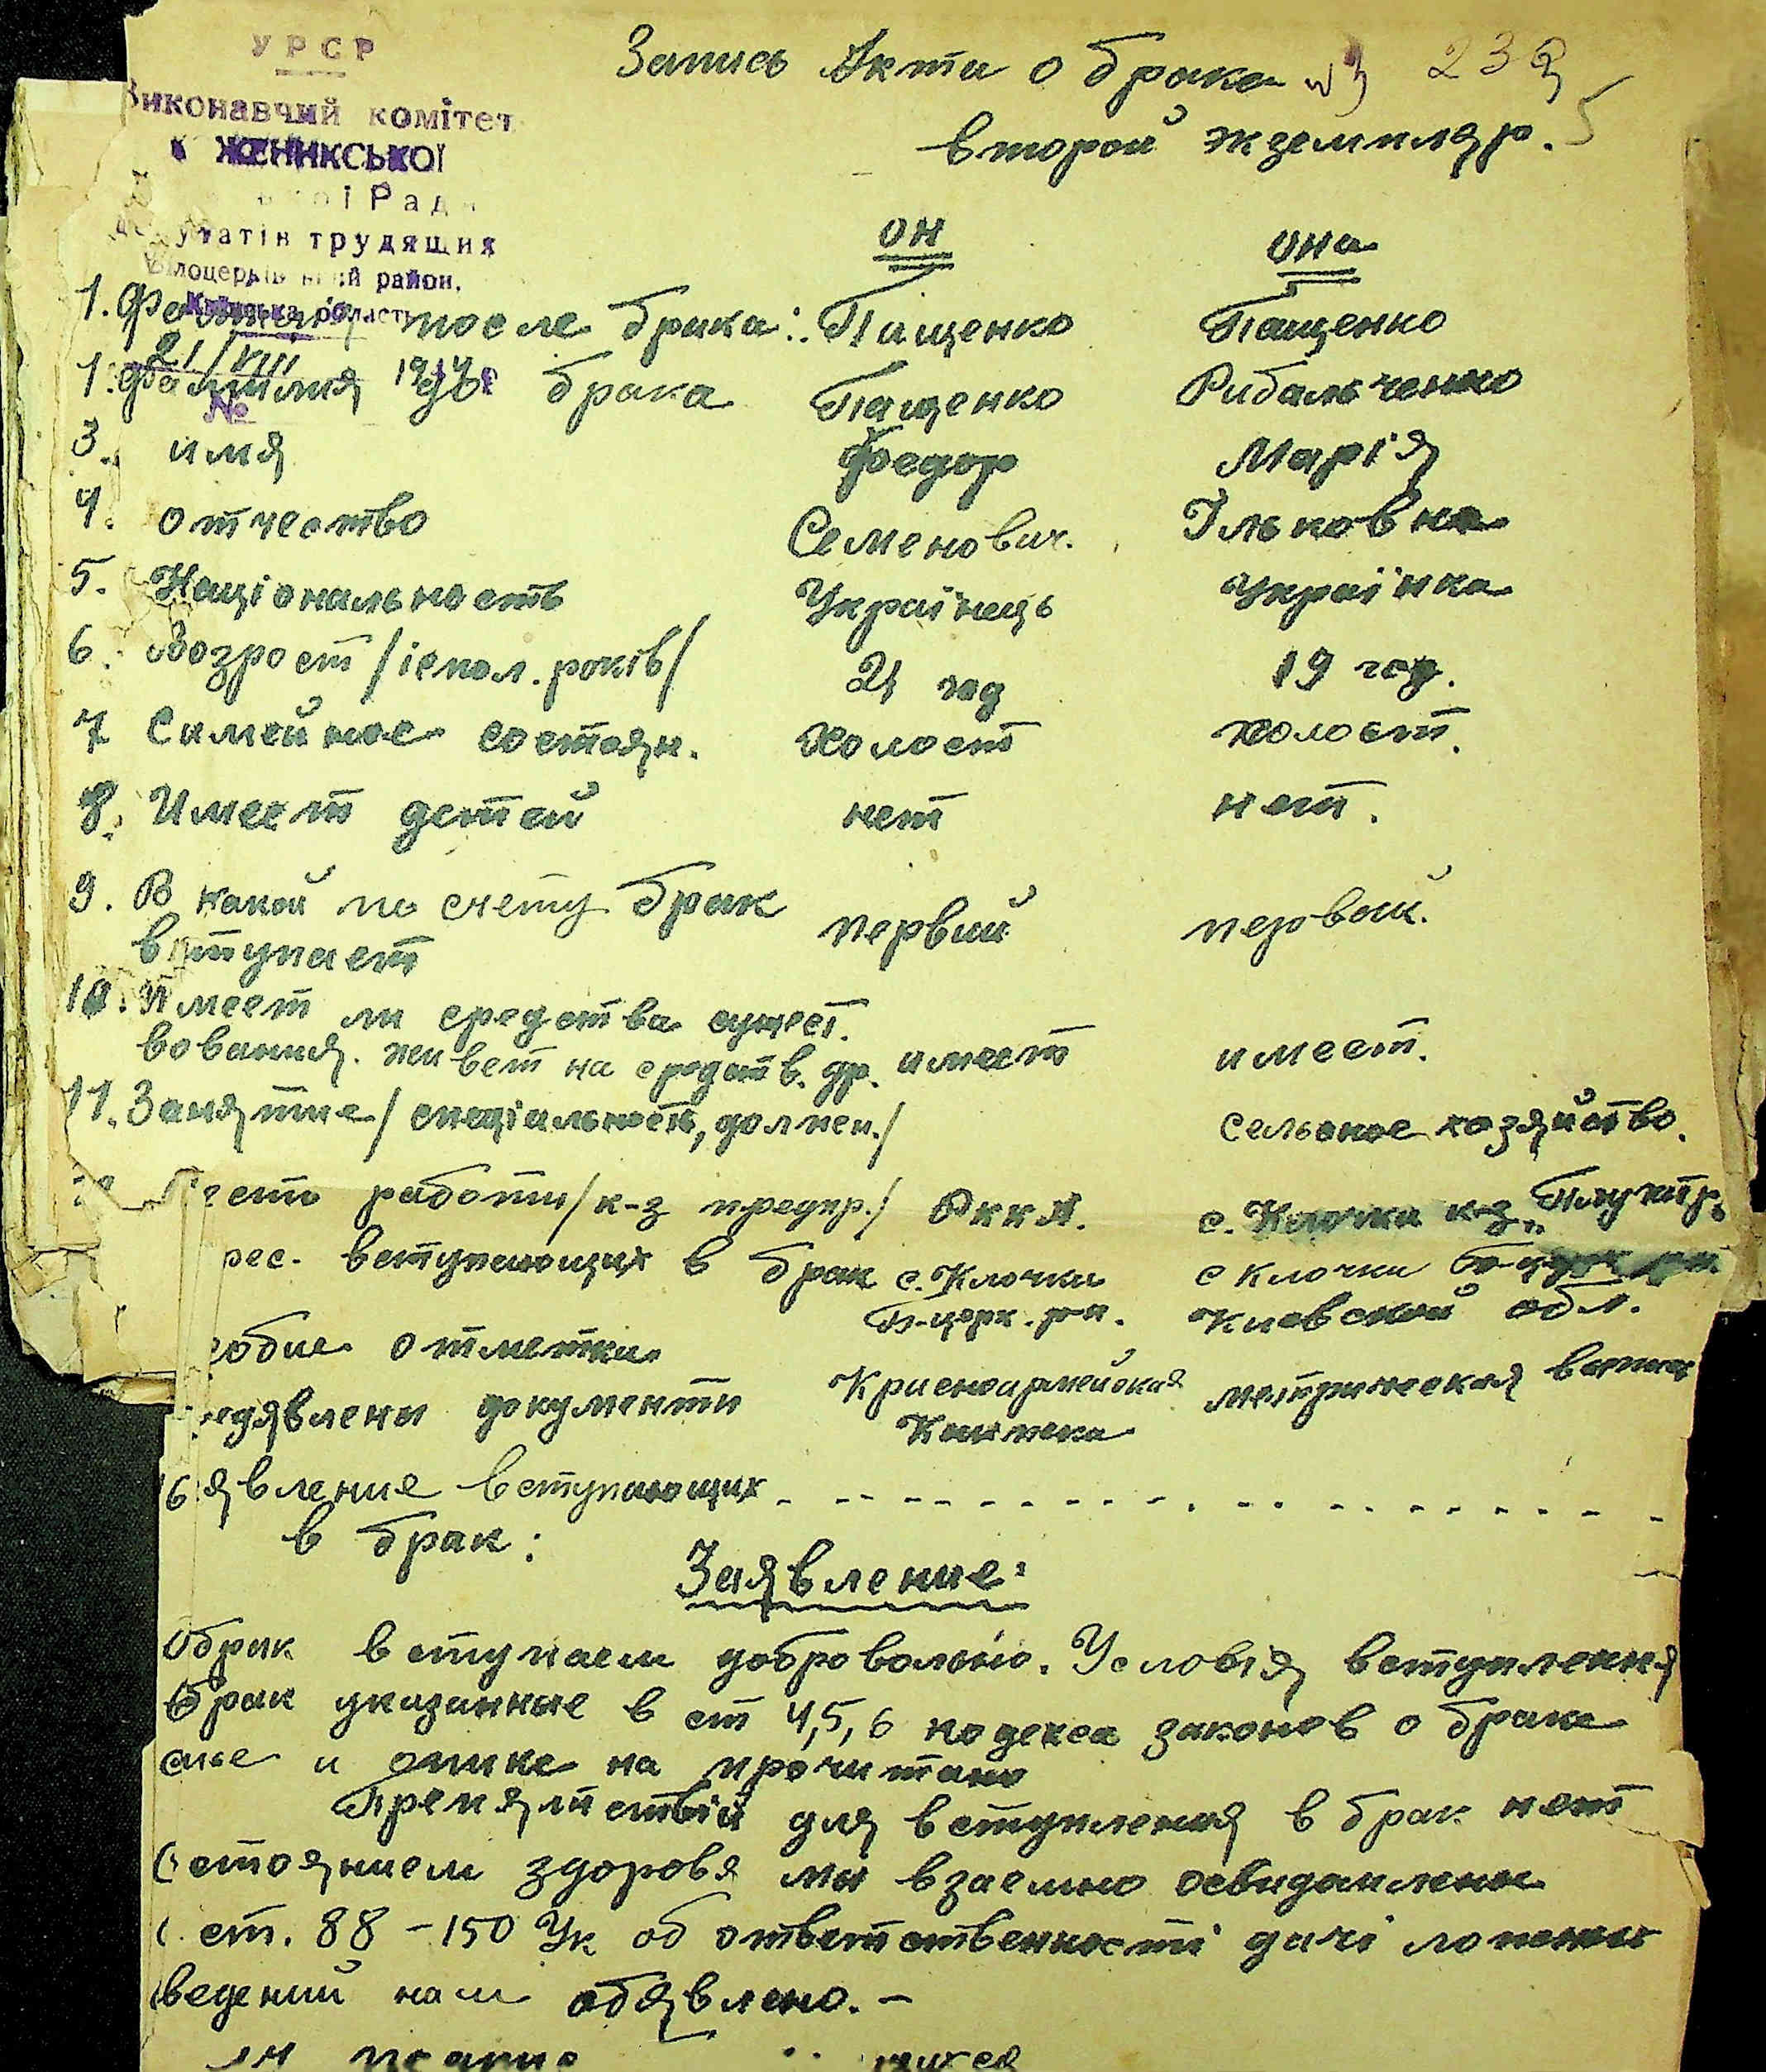 УРСР
Виконавчий комітет
ЖЕНИКСЬКОЇ
Рад
трудящих
район.
Київська область
21/VIII 1944
№
Запись Акти о браке № 3 232
второй экземпляр. 5
он она
1. Фамилия после брака: Пащенко Пащенко
1. фамилия до брака Пащенко Рибальченко
3. имя Федор Марія
4. отчество Семенович. Ільковна
5. Національность Українець Українка
6. Возрост /іспол. років/ 21 год 19 год.
7 Симейное состоян. холост холост.
8. Имеет детей нет нет.
9. В какой по счету брак первий первий.
вступает
10. Имеет ли средства сущест.
вования. живет на средств. др. имеет имеет.
11. Занятие/ специальность, должен./ сельское хозяйство.
место работи/к-з предпр./ РККА. с. Клочки к-з
рес. вступающих в брак с. Клочки с Клочки
Б-церк. р-н. Киевской обл.
собие отметки
едявлени документи Красноармейская метрическая
Книжка
16 явление вступающих
в брак:
Заявление:
Обрак вступаем добровольно. Условія вступления
брак указанние в ст 4,5,6 кодекса законов о браке
емье и опике на прочитано
Препятствій для вступления в брак нет
состоянием здоровя ми взаемно осведомлени
ст. 88-150 Ук об ответственности дачі ложних
сведений нам обявлено.-